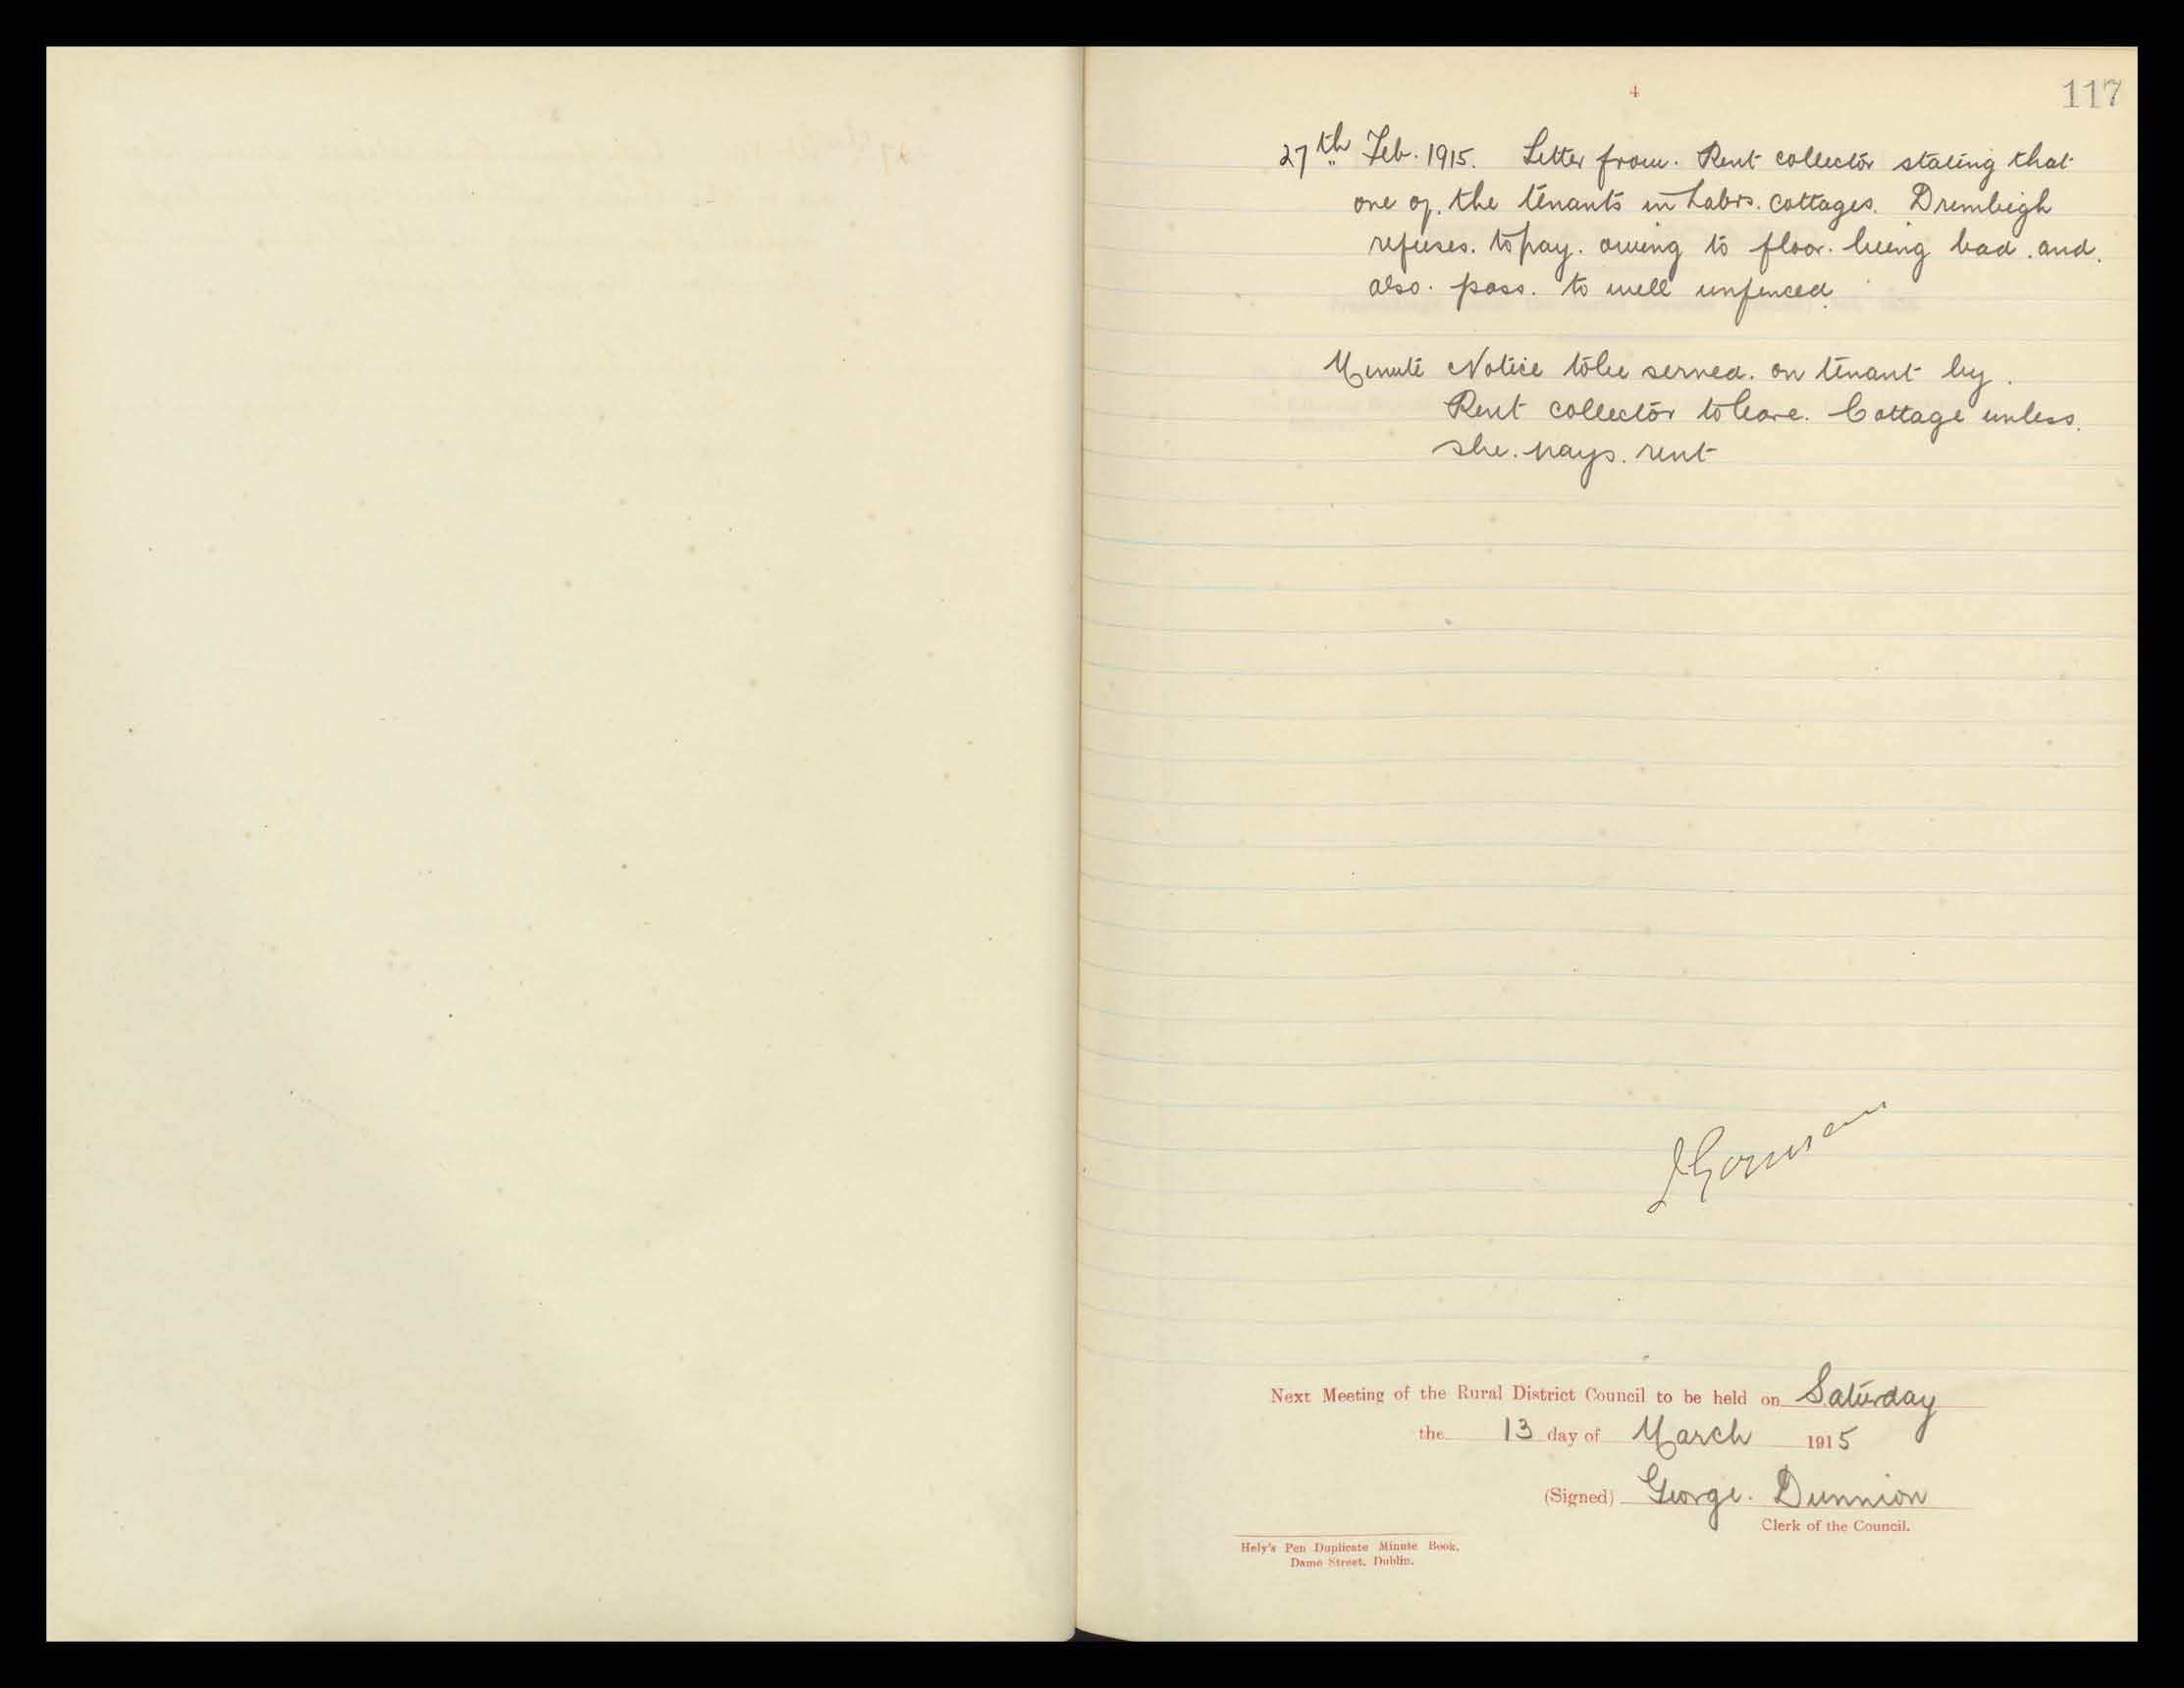 4
117
27th Feb. 1915. Letter from. Rent collector stating that
one of. the tenants in Labrs. Cottages. Drimbeigh
refuses. to pay. owing to floor. being bad. and.
also. pass. to well unfenced
Minute Notice to be served. on tenant by.
Rent collector to leave. Cottage unless.
she. pays. rent
Next Meeting of the Rural District Council to be held on Saturday
the 13 day of March 1915
(Signed) George. Dunnion
Clerk of the Council.
Hely's Pen Duplicate Minute Book,
Dame Street, Dublin.